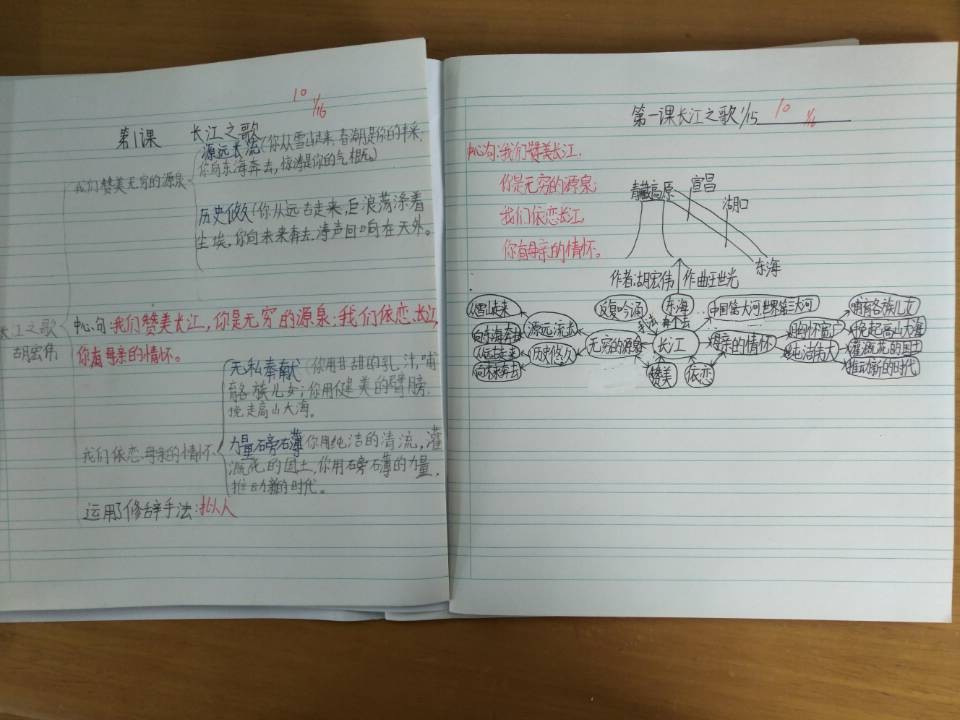 10
1/16
第1课 长江之歌
源远长流(你从雪山走来,春潮是你的丰采
你向东海奔去,惊涛是你的气概。)
我们赞美无穷的源泉
历史悠久(你从远古走来,巨浪荡涤着
尘埃,你向未来奔去,涛声回响在天外。
长江之歌
胡宏伟
中心句:我们赞美长江,你是无穷的源泉;我们依恋长江,
你有母亲的情怀。
无私奉献(你用甘甜的乳汁,哺
育各族儿女;你用健美的臂膀,
挽走高山大海。
我们依恋母亲的情怀
力量磅礴(你用纯洁的清流,灌
溉花的国土,你用磅礴的力量,
推动新的时代。
运用了修辞手法:拟人
第一课长江之歌 1/15 10
中心句:我们赞美长江,
你是无穷的源泉
我们依恋长江
你有母亲的情怀。
青藏高原
宜昌
湖口
东海
作者胡宏伟 作曲王世光
从雪山走来
向东海奔去
从远古走来
向未来奔去
源远流长
历史悠久
反复吟涌
无穷的源泉
东海
长江
赞美
依恋
中国第一大河世界第三大河
母亲的情怀
胸怀宽广
纯洁伟大
哺育各族儿女
挽起高山大海
灌溉花的国土
推动新的时代